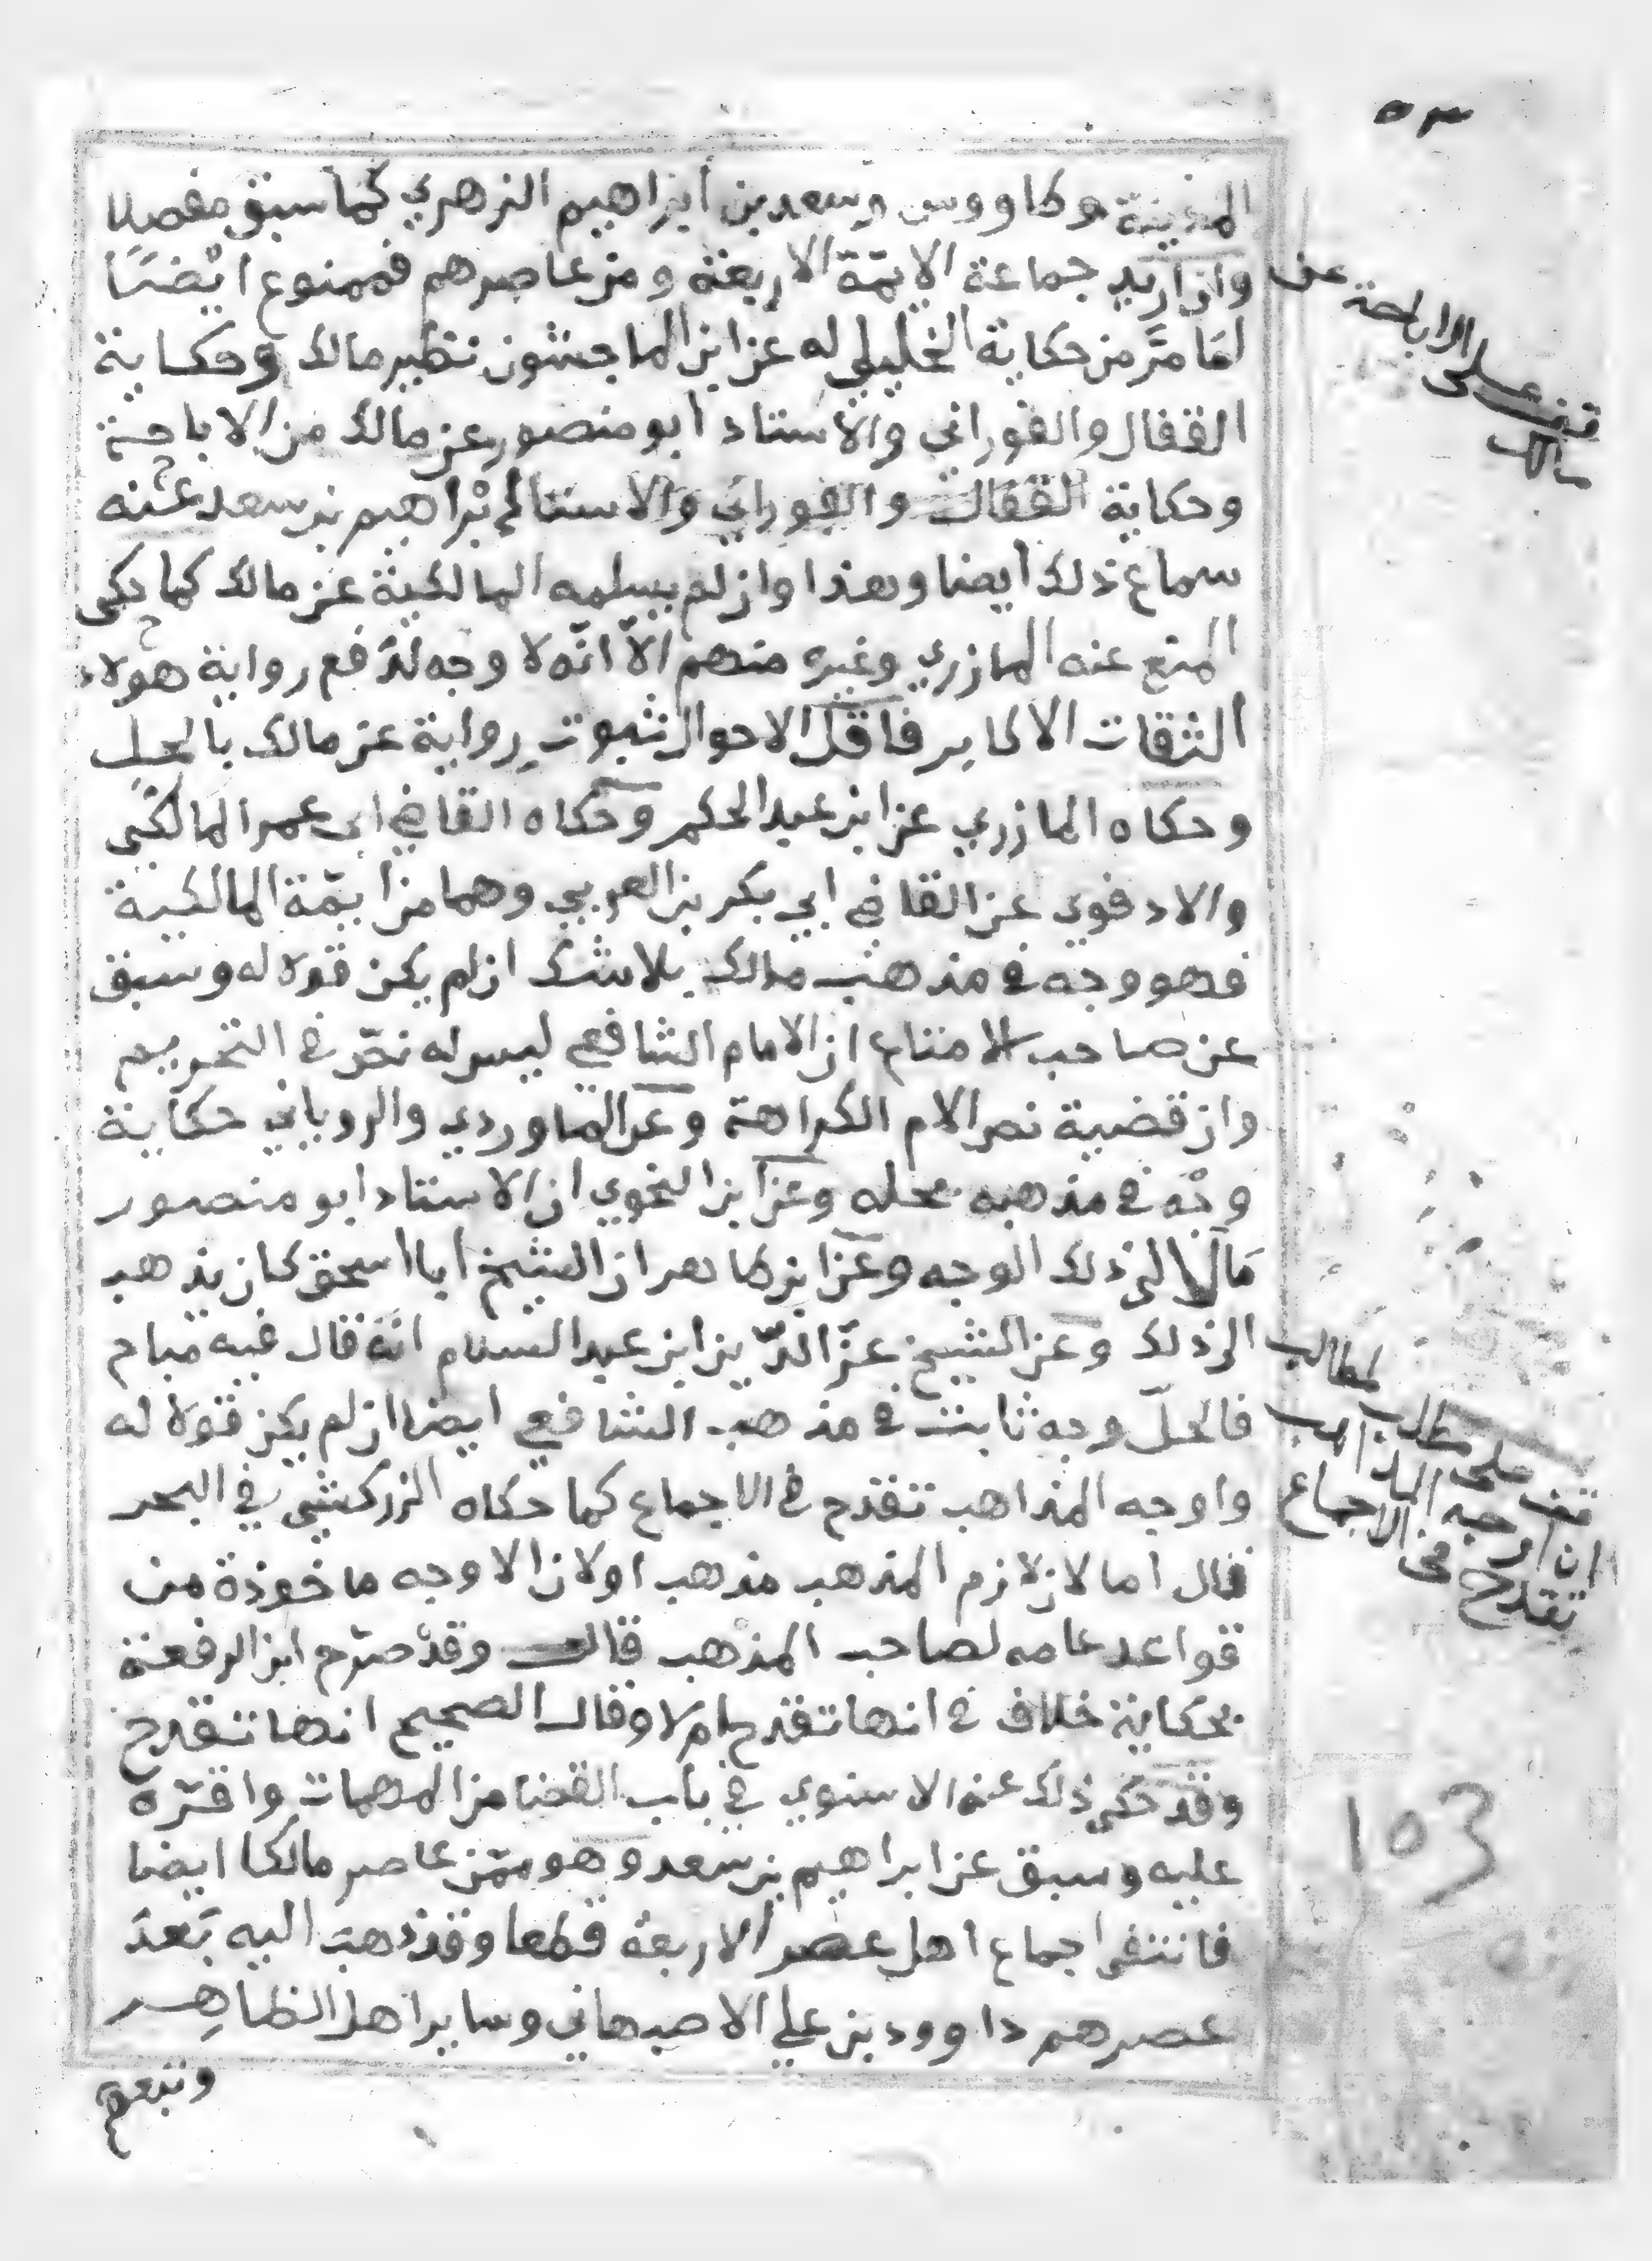 ٥٣
المدينة وطاووس وسعد بن أبراهيم الزهري كما سبق مفصلا
وان اريد جماعة الايمّة الاربعة ومن عاصرهم فممنوع ايْضًا
لمَا مرَّ من حكاية الخليلي له عن ابن الماجشون نظير مالك وحكاية
القفال والفوراني والأستاد ابو منصور عن مالك من الاباحة
وحكاية القفال والفوراني والاستاد لإبْراهيم بن سعد عنه
سماع ذلك أيضا وهذا وان لم يسلمه المالكية عن مالك كما حكى
المنع عنه المازري وغيره منهم الاّ انّه لا وجه لدَفع رواية هولاء
الثقات الاكابر فاقل الاحوال ثبوت رواية عن مالك بالحل
وحكاه المازري عن ابن عبد الحكم وحكاه القاضي ابى عمر المالكى
والادفوي عن القاضي ابي بكر بن العربي وهما من أيمّة المالكية
فهو وجه في مذهب مالك بلا شك ان لم يكن قولا له وسبق
عن صاحب الامتاع ان الامام الشافعي ليس له نصّ في التحريم
وان قضية نص الام الكراهة وعن الماوردي والروياني حكاية
وجْه في مذهبه بحله وعن ابن النحوي ان الاستاد ابو منصور
مَال الى ذلك الوجه وعن ابن طاهر ان الشيخ أبا اسحق كان يذهب
الى ذلك وعن الشيخ عزّ الدّين ابن عبد السلام انّه قال فيه مباح
فالحلّ وجه ثابت في مذهب الشافعي ايضا ان لم يكن قولا له
واوجه المذاهب تقدح في الاجماع كما حكاه الزركشي في البحر
قال اما لان لازم المذهب مذهب اولان الاوجه ماخوذة من
قواعد عامه لصاحب المذهب قال وقد صرّح ابن الرفعة
بحكاية خلاف في انها تقدح ام لا وقال الصحيح انها تقدح
وقد حكى ذلك عنه الاسنوي في باب القضا من المهمات واقرّه
عليه وسبق عن ابراهيم بن سعد وهو ممّن عاصر مالكا ايضا
فانتفى اجماع اهل عصر الاربعة قطعا وقد ذهب اليه بَعدَ
عصرهم داوود بن علي الاصبهاني وساير اهل الظاهر
وتبعهم
قف على الاباحة عن
مالك
مطالب
مطلب
قف على
ان اوجه المذاهب
تقدح في الاجماع
103